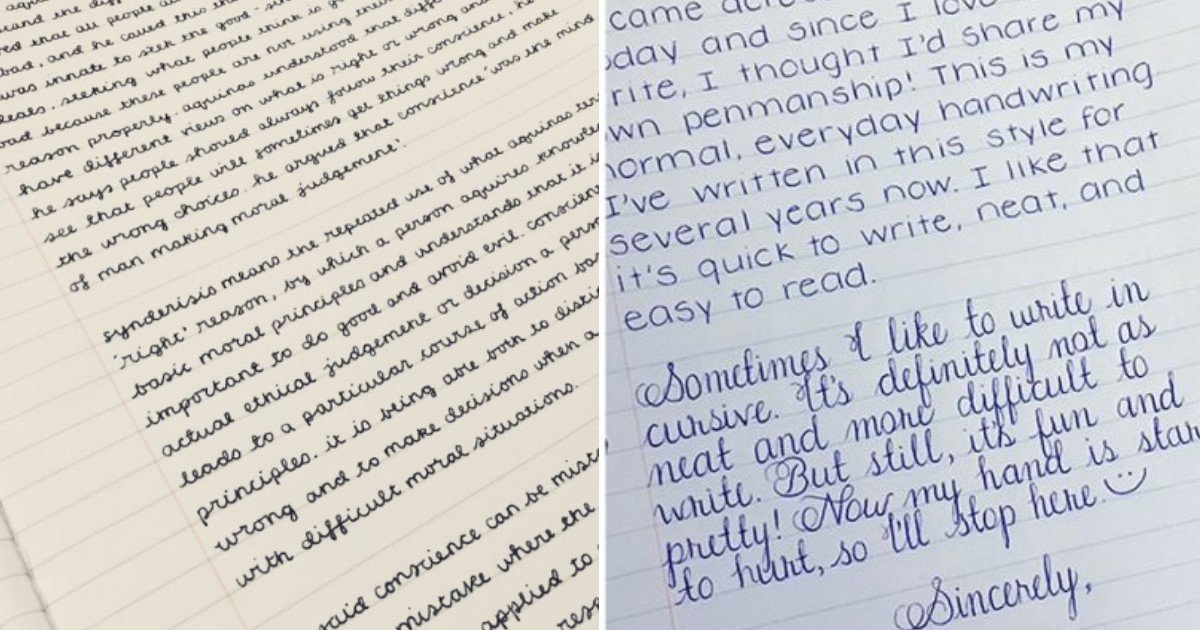 and the diff
ed that all people a
bad, and he called this th
was innate to seek the good - s
deals, seeking what people think is g
bad because these people are not using thei
reason properly. aquinas understood that diff
have different views on what is right or wrong an
he says people should always follow their conscience, he
see that people will sometimes get things wrong and make
the wrong choices. he argued that conscience 'was the mind
of man making moral judgement'.
synderisis means the repeated use of what aquinas ter
'right' reason, by which a person aquires knowle
basic moral principles and understands that it is
important to do good and avoid evil. conscien
actual ethical judgement or decision a pers
leads to a particular course of action ba
principles. it is being able both to disti
wrong and to make decisions when a
with difficult moral situations.
said conscience can be mist
mistake where the
applied to
resp
came acro
oday and since I lov
rite, I thought I'd share my
wn penmanship! This is my
normal, everyday handwriting
I've written in this style for
several years now. I like that
it's quick to write, neat, and
easy to read.
Sometimes I like to write in
cursive. It's definitely not as
neat and more difficult to
write. But still, it's fun and
pretty! Now my hand is star
to hurt, so I'll stop here. :)
Sincerely,